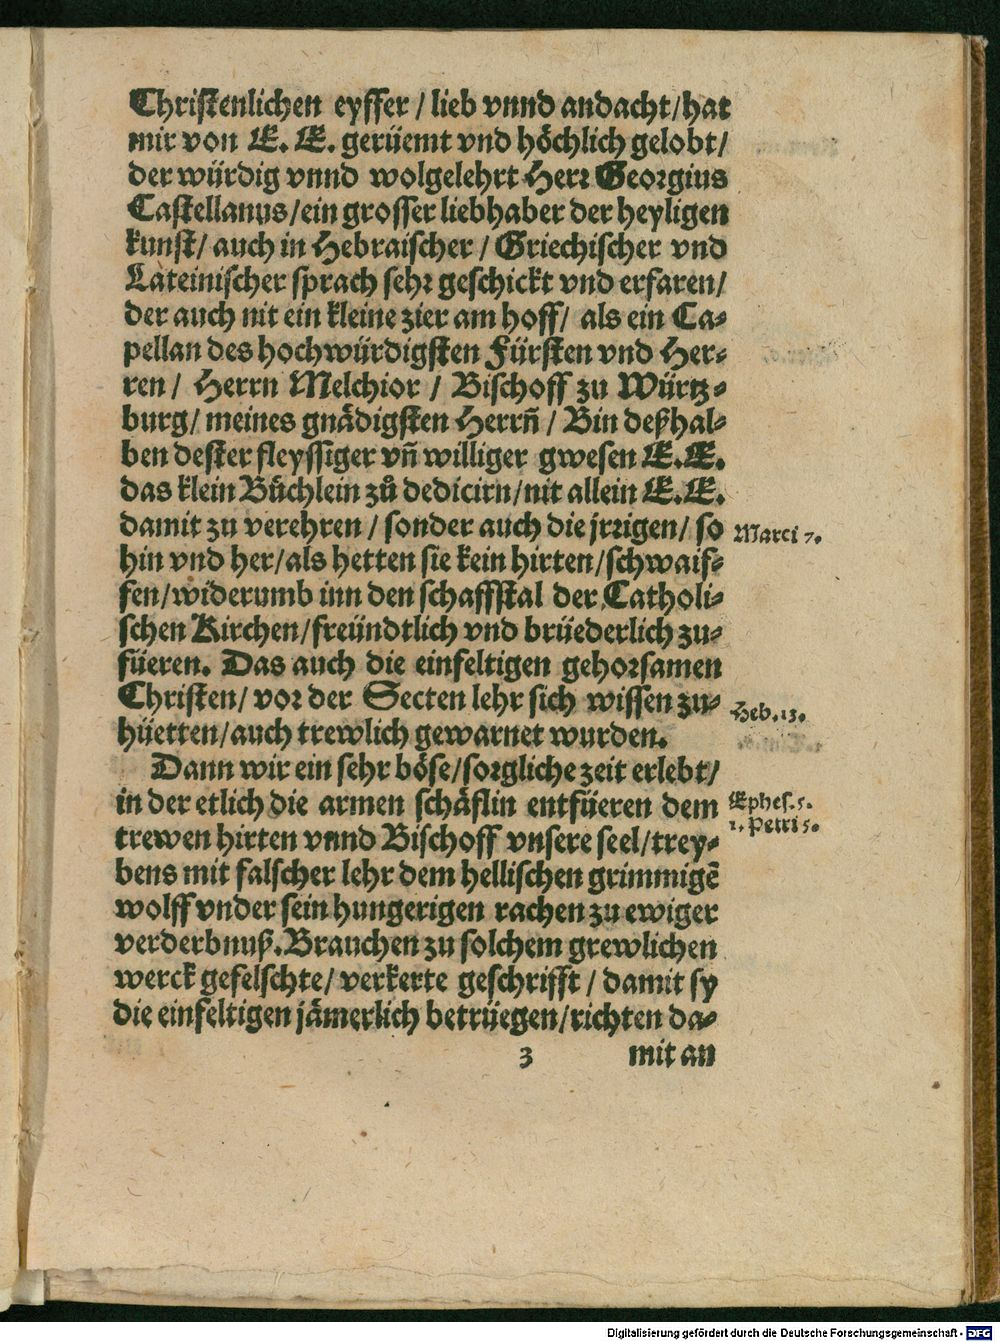 Christenlichen eyffer / lieb vnnd andacht/hat
mir von E. E. gerüemt vnd höchlich gelobt/
der würdig vnnd wolgelehrt Herr Georgius
Castellanus/ein grosser liebhaber der heyligen
kunst/ auch in Hebraischer / Griechischer vnd
Lateinischer sprach sehr geschickt vnd erfaren/
der auch nit ein kleine zier am hoff/ als ein Ca-
pellan des hochwürdigsten Fürsten vnd Her-
ren / Herrn Melchior / Bischoff zu Würtz-
burg/ meines gnädigsten Herrñ / Bin deßhal-
ben dester fleyssiger vñ williger gwesen E.E.
das klein Büchlein zů dedicirn/nit allein E.E.
damit zu verehren / sonder auch die jrrigen/ so
Marci 7.
hin vnd her/als hetten sie kein hirten/schwaif-
fen/widerumb inn den schaffstal der Catholi-
schen Kirchen/freündtlich vnd brüederlich zu-
füeren. Das auch die einfeltigen gehorsamen
Christen/ vor der Secten lehr sich wissen zu-
Heb. 13.
hüetten/auch trewlich gewarnet wurden.
Dann wir ein sehr böse/sorgliche zeit erlebt/
in der etlich die armen schäflin entfüeren dem
Ephes. 5.
1. Petri 5.
trewen hirten vnnd Bischoff vnsere seel/trey-
bens mit falscher lehr dem hellischen grimmigẽ
wolff vnder sein hungerigen rachen zu ewiger
verderbnuß.Brauchen zu solchem grewlichen
werck gefelschte/ verkerte geschrifft / damit sy
die einfeltigen jämerlich betrüegen/richten da-
3 mit an
Digitalisierung gefördert durch die Deutsche Forschungsgemeinschaft - DFG